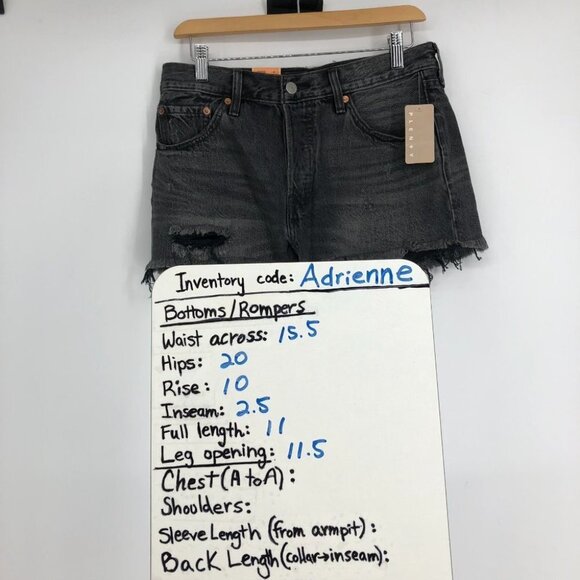 PLENTY
Inventory code: Adrienne
Bottoms/Rompers
Waist across: 15.5
Hips: 20
Rise: 10
Inseam: 2.5
Full length: 11
Leg opening: 11.5
Chest (A to A):
Shoulders:
Sleeve Length (from armpit):
Back Length (collar→inseam):